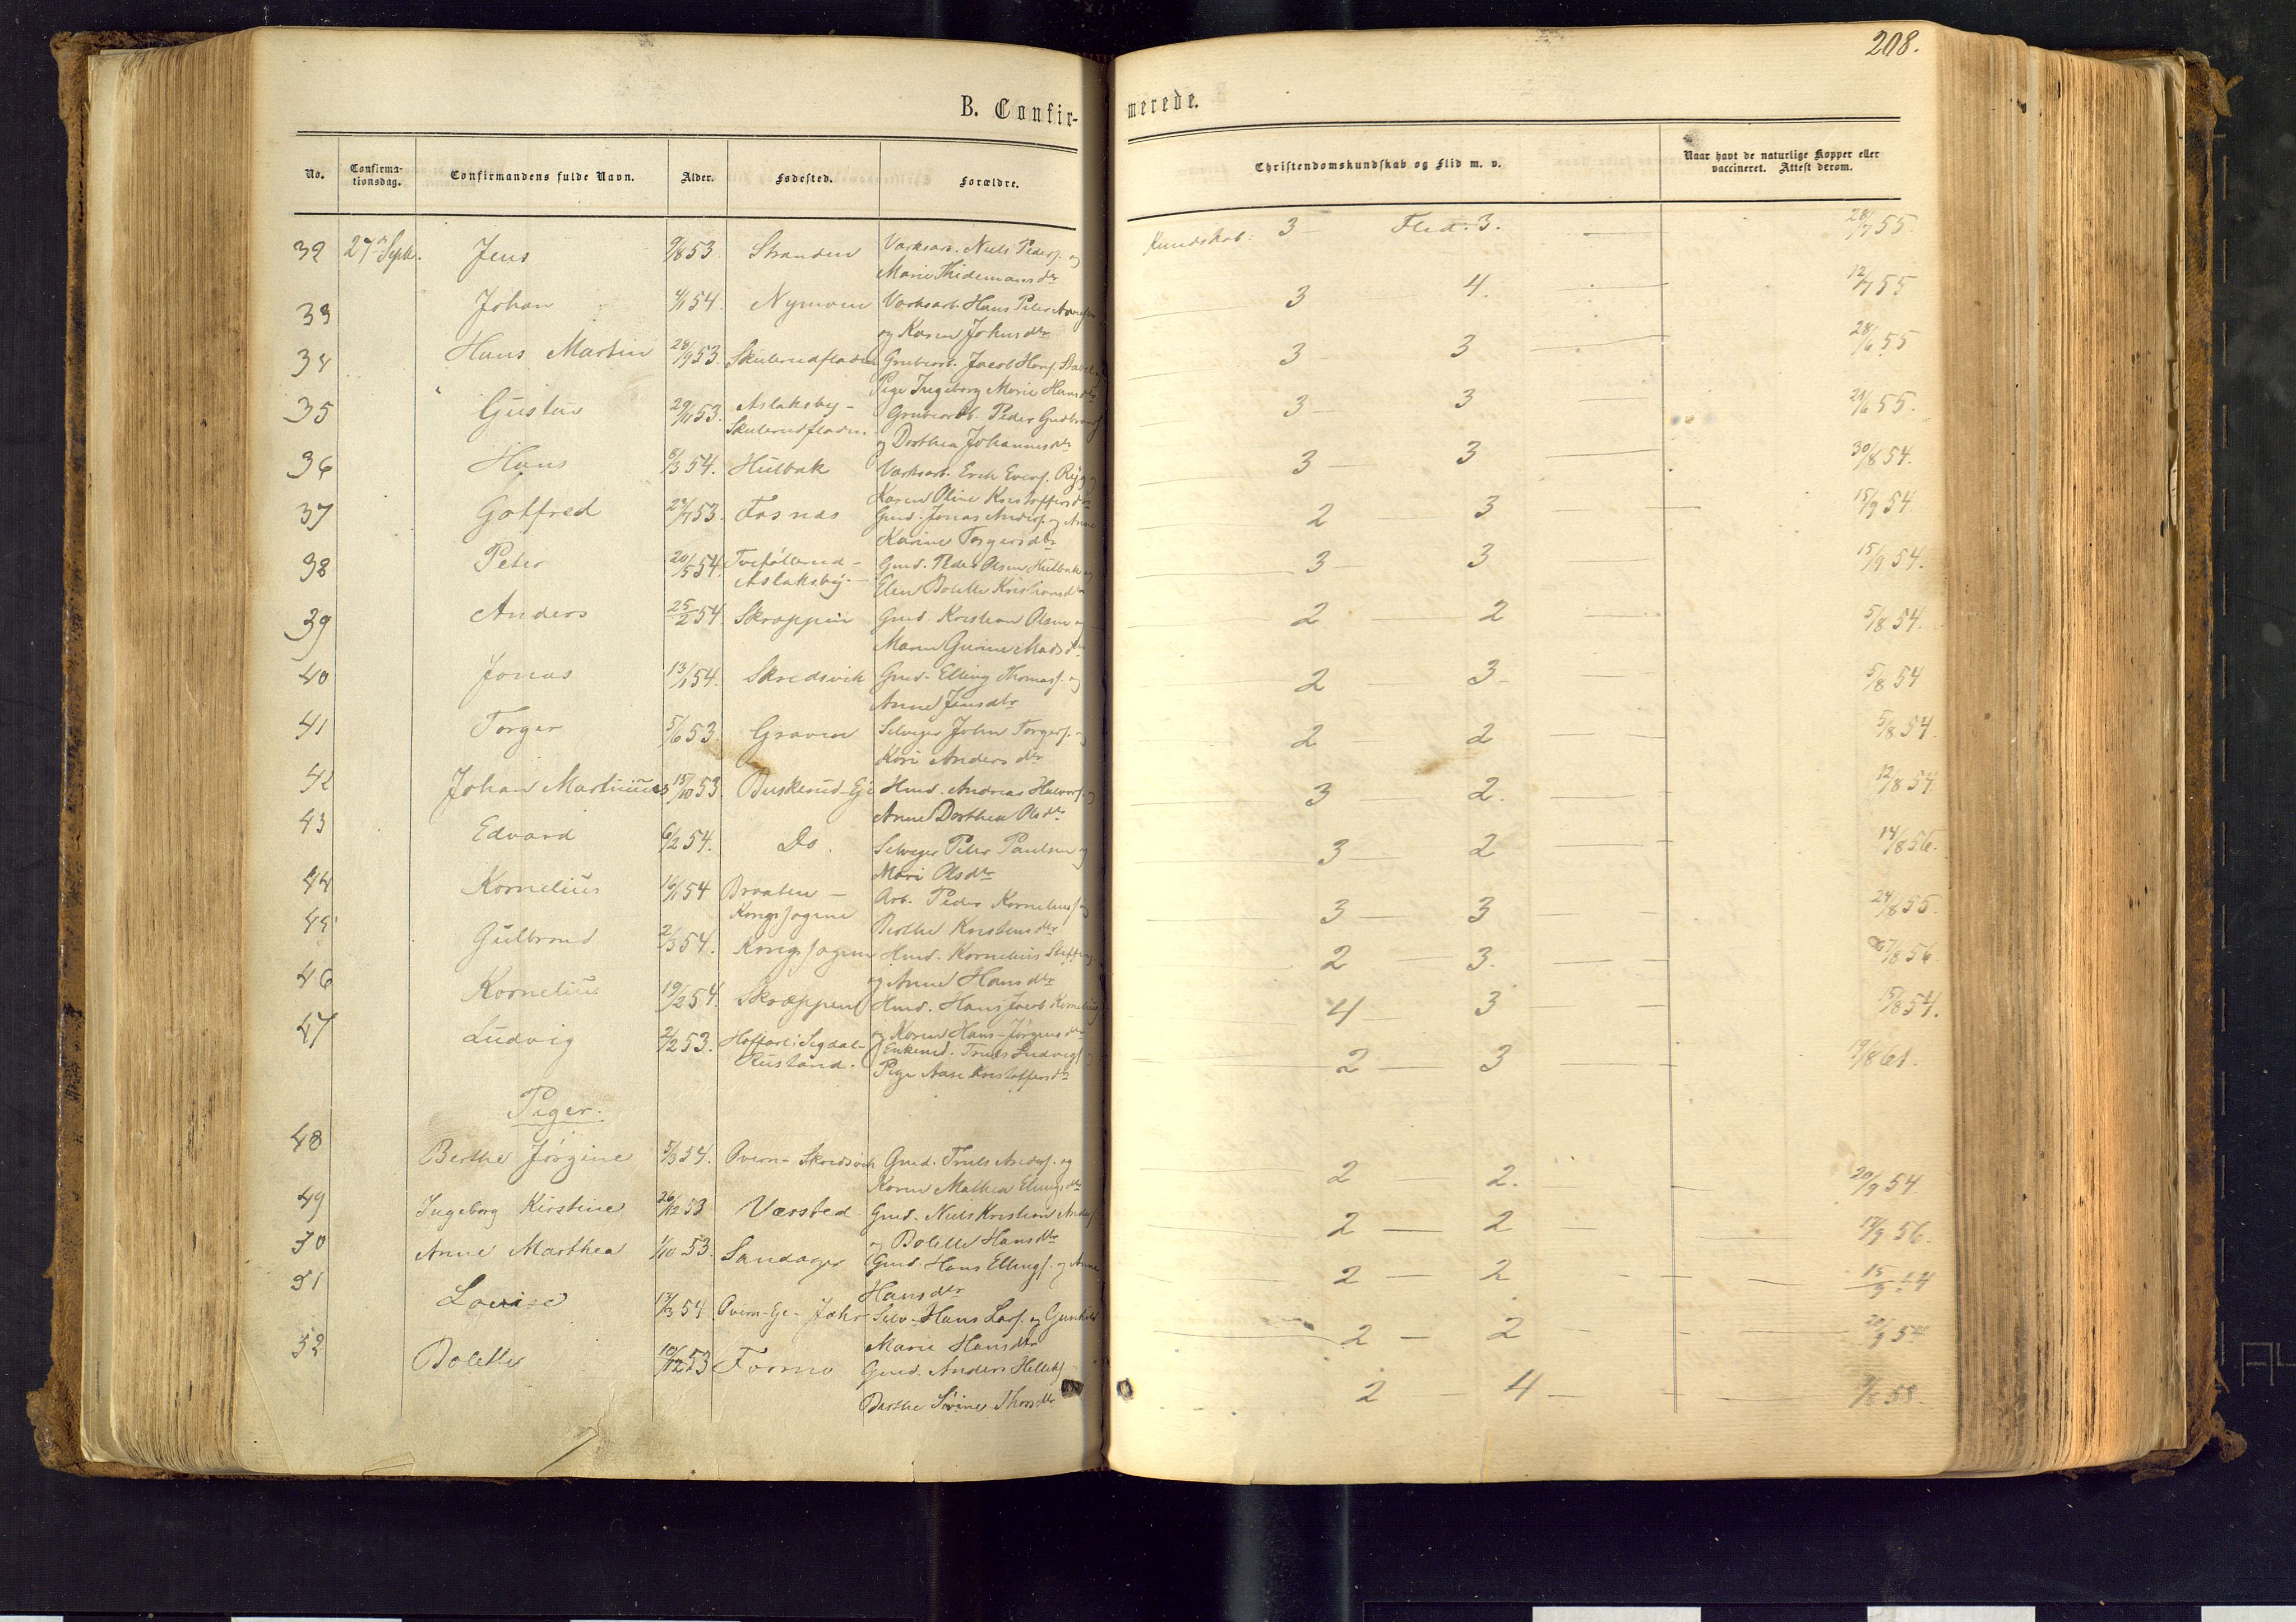 208.
B. Confir-
merede.
No.
Confirma-
tionsdag.
Confirmandens fulde Navn.
Alder.
Fødested.
Forældre.
Christendomskundskab og Flid m. v.
Naar havt de naturlige Kopper eller
vaccineret. Attest derom.
32 27de Septb. Jens 9/8 53. Stranden Værksarb. Niels Peders. og Kundskab: 3 — Flid. 3. 28/7 55.
Marie Thidemansdtr
33 Johan 4/1 54. Nymoen Værksarb. Hans Peter 3 4. 12/7 55
og Karen Johnsdtr
34 Hans Martin 28/9 53. Skulerudfladen Grubearb. Jacob Hans. 3 3 28/6 55
Pige Ingeborg Marie Hansdtr
35 Gustav 29/11 53. Aslaksby - Grubearb. Peder Gudbrands. 3 3 21/6 55.
Skulerudfladen. og Dorthea Johannesdtr
36 Hans 8/3 54. Hulbak Værksarb. Erik Evers. Ryg og 3 3 30/8 54.
Karen Oline Kristoffersdtr
37 Gotfred 27/7 53. Fosnæs Gmd. Jonas Anders. og Anne 2 3 15/9 54.
Karine Torgersdtr
38 Peter 20/5 54. Tveføllerud - Gmd. Peder Olsen Hulbak og 3 3 15/9 54.
Aslaksby. - Elen Bolette Kristiansdtr
39 Anders 25/2 54. Skroppen Gmd. Kristian Olsen og 2 2 5/8 54.
Maren Gurine Madsdtr
40 Jonas 13/1 54. Skredsvik Gmd. Elling Thomas. og 2 3 5/8 54
Anne Jensdtr
41 Torger 5/6 53. Graven Selveger John Torgers. og 2 2 5/8 54.
Kari Andersdtr
42 Johan Martinius 15/10 53. Buskerud-Eje Hmd. Andreas Halvors. og 3 2. 12/8 54.
Anne Dorthea Olsdtr
43 Edvard 6/2 54. Do. Selveger Peter Paulsen og 3 2 14/8 56.
Mari Olsdtr
44 Kornelius 16/1 54 Braaten - Arb. Peder Kornelius. og 3 3 24/8 55.
Kongssagene Berthe Kristensdtr
45 Gulbrand 2/3 54. Kongssagene Hmd. Kornelius Steffens. 2 3. 27/8 56
og Anne Hansdtr
46 Kornelius 19/2 54. Skroppen Hmd. Hans Jacob Kornelius. 4 3 15/8 54.
og Karen Hans-Jørgensdtr
47 Ludvig 2/2 53. Hoffart i Sigdal- Enkemd. Truls Ludvigs. og 2 3 19/8 61.
Rustand. Pige Aase Kristoffersdtr
Piger.
48 Berthe Jørgine 5/3 54. Overn- Skredsvik Gmd. Truls Anders. og 2 2. 20/9 54.
Karen Mathea Ellingsdtr
49 Ingeborg Kirstine 26/12 53 Værsted Gmd. Niels Kristian Anders. 2 2 17/9 56.
og Bolette Hansdtr
50 Anne Marthea 1/10 53. Sandager Gmd. Hans Ellings. og Anne 2 2 15/9 54
Hansdtr
51 Lovise 13/3 54. Overn-Eje- Selv. Hans Lars. og Gunhild 2 2 20/9 54
Marie Hansdtr
52 Bolette 10/12 53 Formo Gmd. Anders Helliks. 2 4 58.
Berthe Sørine Thorsdtr